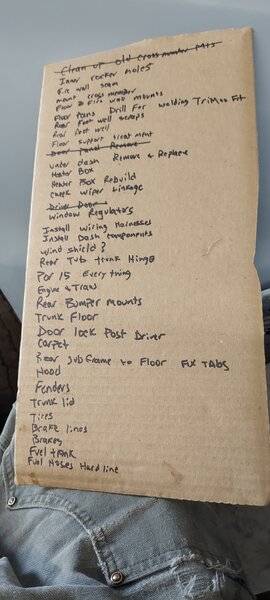 Clean up old cross member Mts
Inner rocker holes
Fire wall seam
mount cross member
Floor & Fire wall mounts
Floor Pans Drill For welding Trim or Fit
Rear Foot well scraps
Rear foot well
Floor support treatment
Door Panel Remove
under dash Remove & Replace
Heater Box
Heater Box Rebuild
check wiper Linkage
Driver Door
window Regulators
Install wiring Harnesses
Install Dash components
wind shield ?
Rear Tub trunk Hinge
Por 15 Every thing
Engine & Trans
Rear Bumper mounts
Trunk Floor
Door lock Post Driver
carpet
Rear sub frame to Floor Fix TAbs
Hood
Fenders
Trunk lid
Tires
Brake lines
Brakes
Fuel tank
Fuel Hoses Hard line